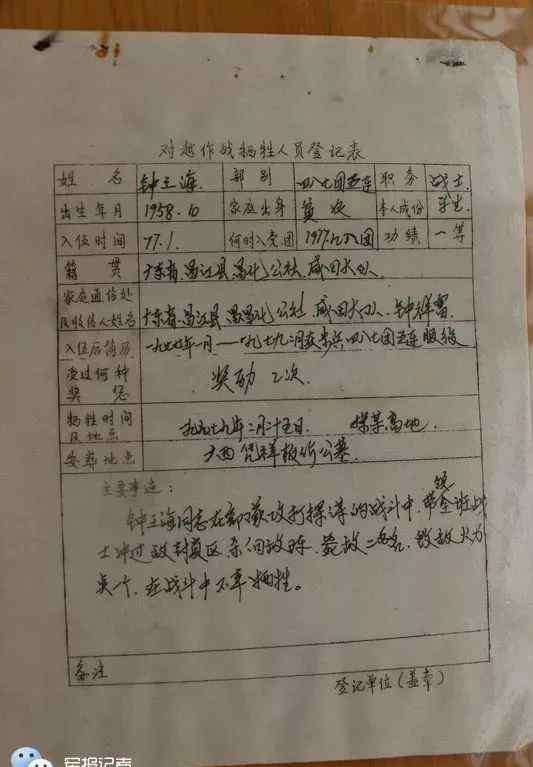 对越作战牺牲人员登记表
姓名 钟立海 部别 四八七团五连 职务 战士
出生年月 1958.10 家庭出身 贫农 本人成份 学生
入伍时间 77.1. 何时入党团 1977.九入团 功绩 一等
籍贯 广东省.昌江县.昌化公社.咸田大队.
家庭通信处及收信人姓名 广东省.昌江县昌化公社 咸田大队.
入伍后简历 一九七七年一月——一九七九二月在 四八七团五连服役
受过何种奖惩 奖励 2次.
牺牲时间及地点 一九七九年二月二十五日. 高地.
安葬地点 广西凭祥板价公墓.
主要事迹:
钟立海同志在 攻打探 的战斗中,带领全班战
士冲过敌封 区,杀向敌 .毙敌二名, 敌火力
点一个,在战斗中不幸牺牲。
备注
登记单位(盖章)
军报记者